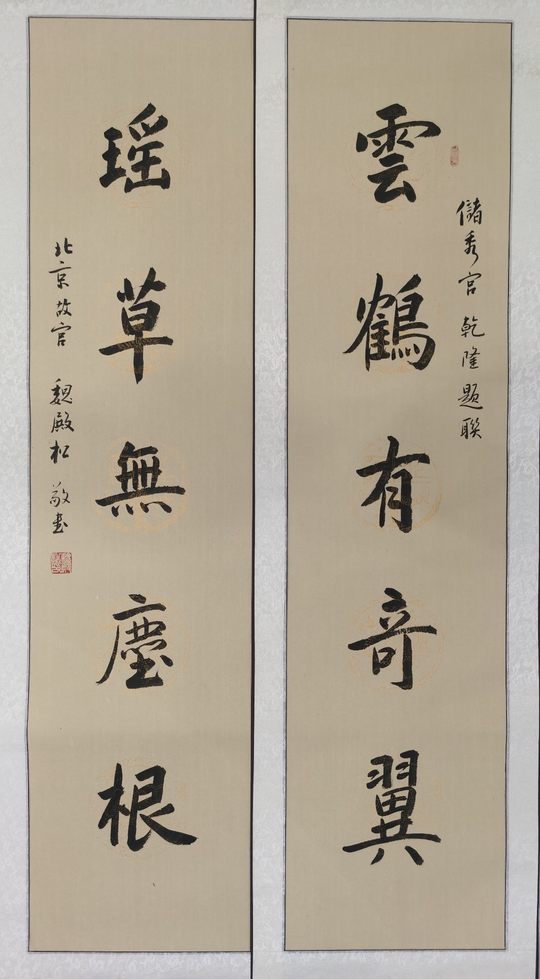 儲秀宮 乾隆題聯
雲鶴有奇翼
瑶草無塵根
北京故宫 魏殿松 敬书